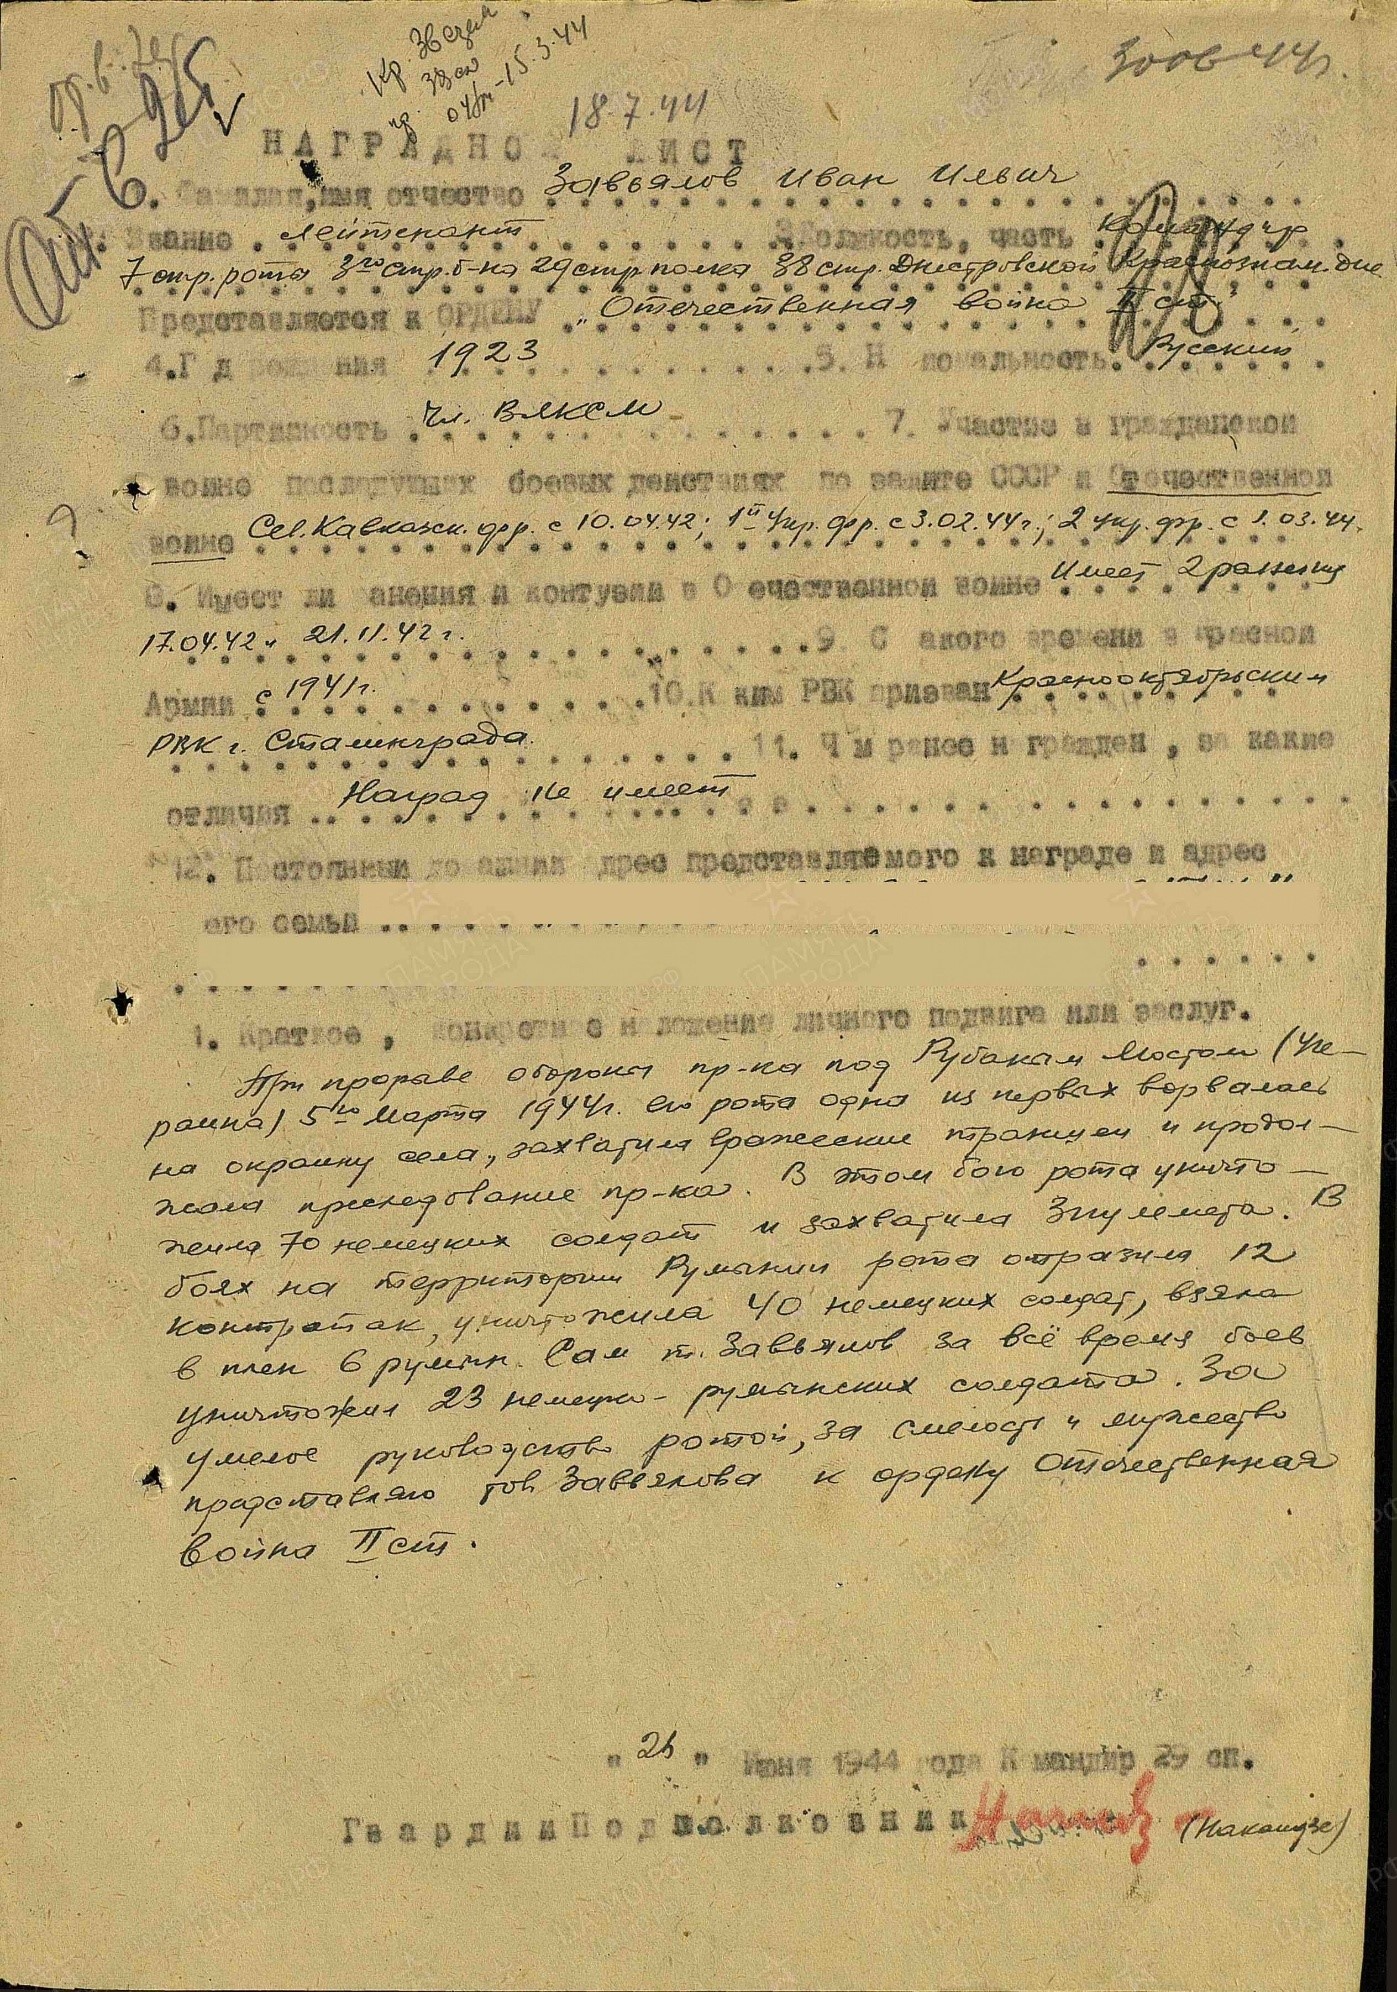 Кр. Звезда
38 сд
пр. 04/н-15.3.44
18.7.44
НАГРАДНОЙ ЛИСТ
. Фамилия, имя отчество Завьялов Иван Ильич
Звание . лейтенант 3. Должность, часть . Командир
7 стр. роты 3го стр. б-на 29 стр. полка 38 стр. Днестровской Краснознам. див.
Представляется к ОРДЕНУ „Отечественная война II ст"
4. Г д рождения 1923 5. Н иональность. Русский
6. Партийность . чл. ВЛКСМ 7. Участие в гражданской
войне последующих боевых действиях по защите СССР и Отечественной
войне Сев. Кавказск. фр. с 10.04.42; 1й Укр. фр. с 3.02.44г.; 2 укр. фр. с 1.03.44.
8. Имеет ли анения и контузии в О ечественной войне . Имеет 2 ранения
17.04.42 и 21.11.42 г. 9 С акого времени в красной
Армии с 1941г. 10. К ким РВК призван Краснооктябрьским
РВК г. Сталинграда. 11. Ч м ранее н гражден, за какие
отличия .. Наград не имеет
12. Постоянный домашний дрес представляемого к награде и адрес
его семьи
1. Краткое, конкретное изложение личного подвига или заслуг.
При прорыве обороны пр-ка под Рубаным Мостом (Ук-
раина) 5го Марта 1944г. его рота одна из первых ворвалась
на окраину села, захватила вражеские траншеи и продол-
жала преследование пр-ка. В этом бою рота уничто-
жила 70 немецких солдат и захватила 3 пулемета. В
боях на территории Румынии рота отразила 12
контратак, уничтожила 40 немецких солдат, взяла
в плен 6 румын. Сам т. Завьялов за всё время боев
уничтожил 23 немецко-румынских солдата. За
умелое руководство ротой, за смелость и мужество
представляю тов Завьялова к ордену Отечественная
война II ст.
" " Июня 1944 года К мандир 29 сп.
Гвардии Подполковник (Накаидзе)